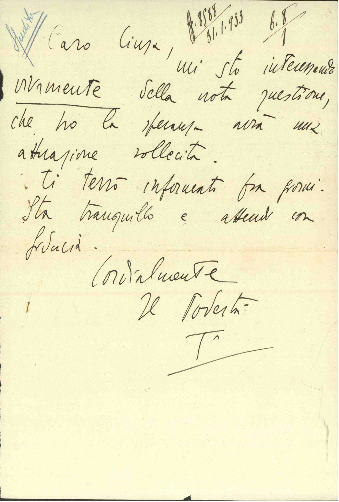 8588
31.1.933
6.8
1
Caro Ciuza,
mi sto interessando
vivamente della nota questione,
che ho la speranza avrà una
attuazione sollecita.
Ti terrò informato fra giorni.
Sta tranquillo e attendi con
fiducia.
Cordialmente
Il Podestà